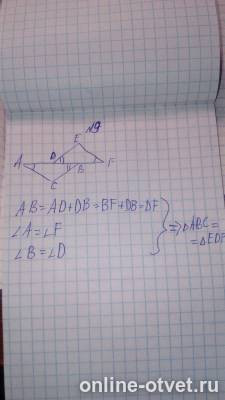 №9
E
D
A
F
B
C
AB=AD+DB=BF+DB=DF
∠A=∠F
∠B=∠D
⇒△ABC=
=△EDF
online-otvet.ru